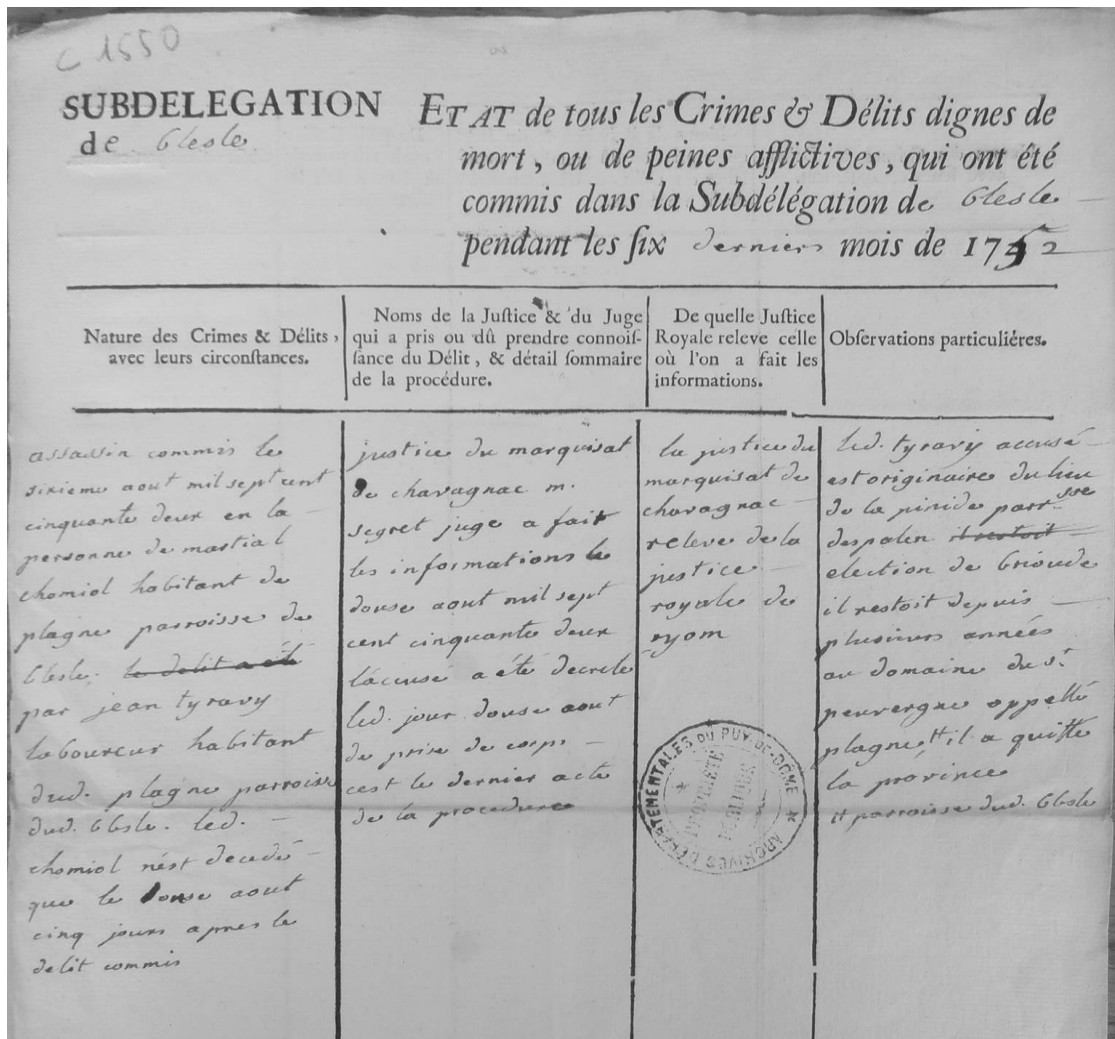 C 1550
SUBDELEGATION
de blesle
ETAT de tous les Crimes & Délits dignes de
mort, ou de peines afflictives, qui ont été
commis dans la Subdélégation de blesle
pendant les six derniers mois de 1752
Nature des Crimes & Délits,
avec leurs circonstances.
Noms de la Justice & du Juge
qui a pris ou dû prendre connois-
sance du Délit, & détail sommaire
de la procédure.
De quelle Justice
Royale releve celle
où l'on a fait les
informations.
Observations particuliéres.
assassin commis le
sixieme aout mil sept cent
cinquante deux en la
personne de martial
chomiol habitant de
plagne parroisse de
blesle. le delit a été
par jean tyravy
laboureur habitant
dud. plagne parroisse
dud. blesle. led.
chomiol n'est decedé
que le douse aout
cinq jours apres le
delit commis
justice du marquisat
de chavagnac m.
segret juge a fait
les informations le
douse aout mil sept
cent cinquante deux
l'acusé a été decrete
led. jour douse aout
de prise de corps
cest le dernier acte
de la procedure
la justice du
marquisat de
chavagnac
releve de la
justice
royale de
ryom
led. tyravy accusé
est originaire du lieu
de la pinide parr.sse
despalen il restoit
election de brioude
il restoit depuis
plusieurs années
au domaine du sr.
peuvergne appellé
plagne, # il a quitte
la province
# parroisse dud. blesle
ARCHIVES DÉPARTEMENTALES DU PUY-DE-DÔME
PROPRIÉTÉ
PUBLIQUE